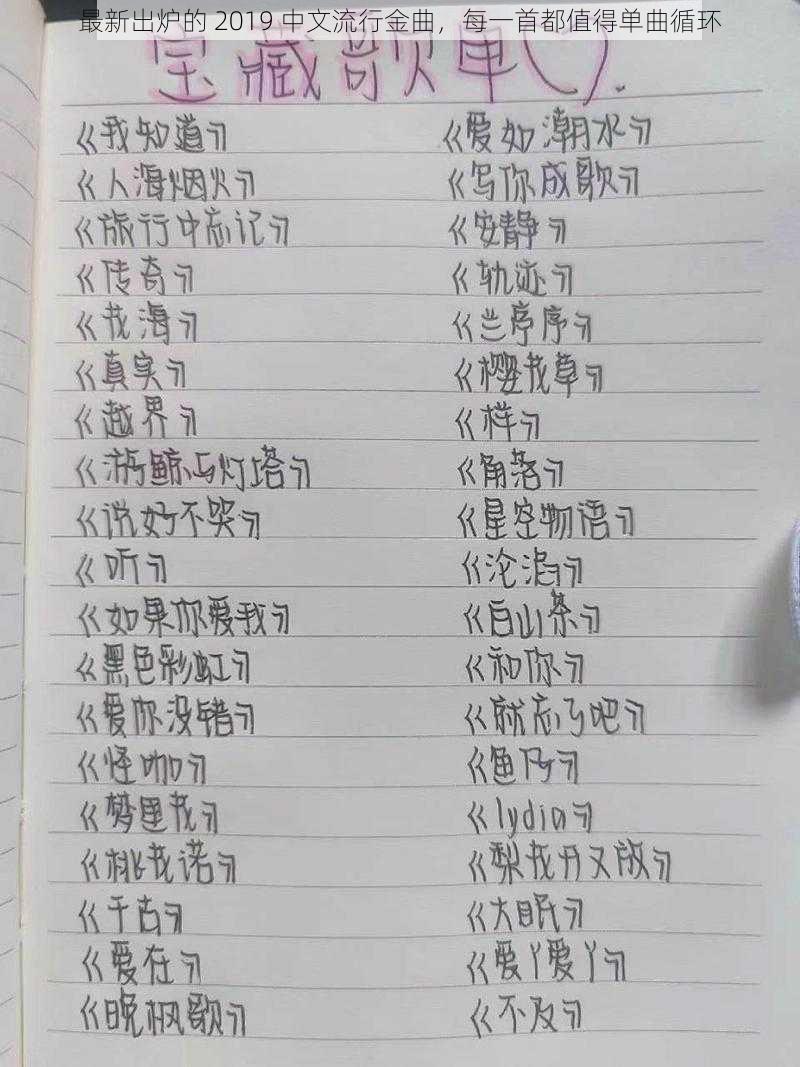 最新出炉的 2019 中文流行金曲，每一首都值得单曲循环
宝藏歌单().
《我知道》
《人海烟火》
《旅行中忘记》
《传奇》
《花海》
《真实》
《越界》
《游鲸与灯塔》
《说好不哭》
《听》
《如果你爱我》
《黑色彩虹》
《爱你没错》
《怪咖》
《梦里花》
《桃花诺》
《千古》
《爱在》
《晚枫歌》
《爱如潮水》
《写你成歌》
《安静》
《轨迹》
《兰亭序》
《樱花草》
《样》
《角落》
《星空物语》
《沦陷》
《白山茶》
《和你》
《就忘了吧》
《鱼仔》
《lydia》
《梨花开又放》
《大眠》
《爱丫爱丫》
《不及》